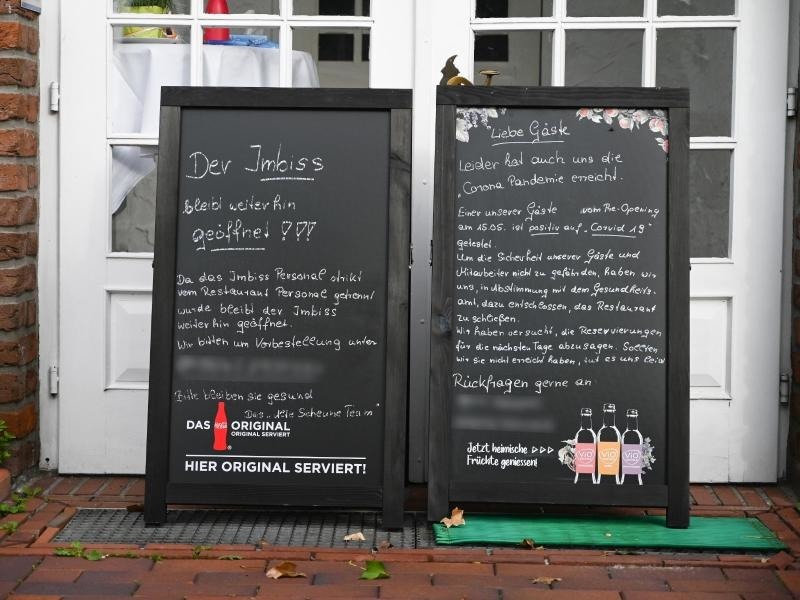 Der Imbiss
bleibt weiterhin
geöffnet !!!
Da das Imbiss Personal strikt
vom Restaurant Personal getrennt
wurde bleibt der Imbiss
weiterhin geöffnet.
Wir bitten um Vorbestellung unter
Bitte bleiben sie gesund
Das „Alte Scheune Team"
DAS ORIGINAL
ORIGINAL SERVIERT
HIER ORIGINAL SERVIERT!
"Liebe Gäste
Leider hat auch uns die
"Corona Pandemie erreicht.
Einer unserer Gäste vom Pre-Opening
am 15.05. ist positiv auf „Corvid 19"
getestet.
Um die Sicherheit unserer Gäste und
Mitarbeiter nicht zu gefährden, haben wir
uns, in Abstimmung mit dem Gesundheits-
amt, dazu entschlossen, das Restaurant
zu schließen.
Wir haben versucht, die Reservierungen
für die nächsten Tage abzusagen. Sollten
wir sie nicht erreicht haben, tut es uns leid
Rückfragen gerne an
Jetzt heimische
Früchte geniessen!
ViO ViO ViO